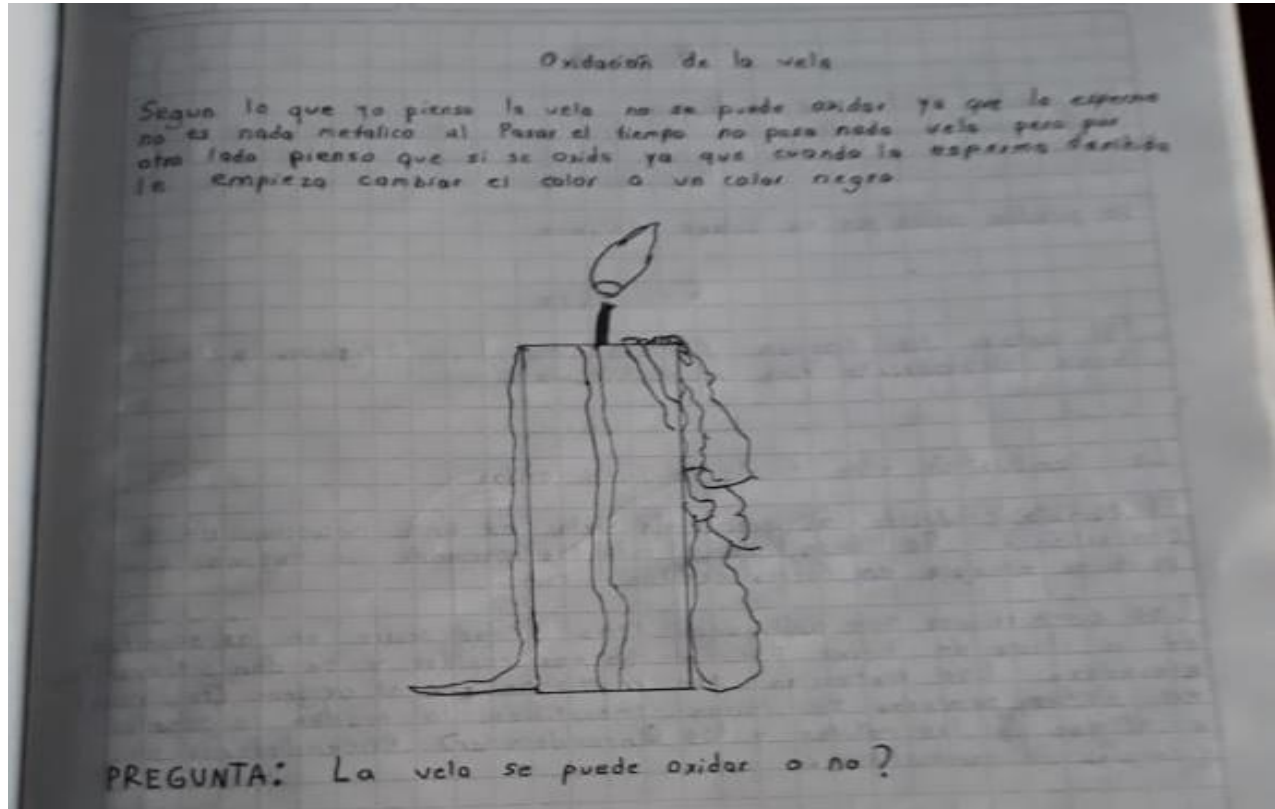 Oxidación de la vela
Segun lo que yo pienso la vela no se puede oxidar ya que la esperma
no es nada metalico al Pasar el tiempo no pasa nada vela pero por
otro lado pienso que si se oxida ya que cuando la esperma
le empieza cambiar el color a un color negro
PREGUNTA: La vela se puede oxidar o no?